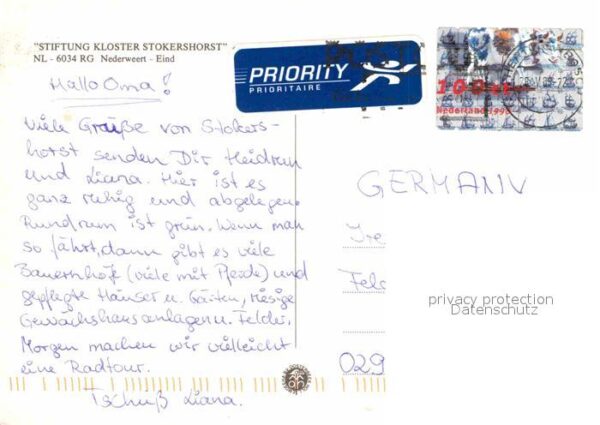 "STIFTUNG KLOSTER STOKERSHORST"
NL - 6034 RG Nederweert - Eind
PRIORITY
PRIORITAIRE
100 ct
Nederland 1995
Hallo Oma!
Viele Grüße von Stokers-
horst senden Dir Heidrun
und Liana. Hier ist es
ganz ruhig und abgelegen.
Rundrum ist grün. Wenn man
so fährt, dann gibt es viele
Bauernhöfe (viele mit Pferde) und
gepflegte Häuser u. Gärten, riesige
Gewächshausanlagen u. Felder.
Morgen machen wir vielleicht
eine Radtour.
Tschüß Liana.
GERMANY
Ire
Feld
029
privacy protection
Datenschutz